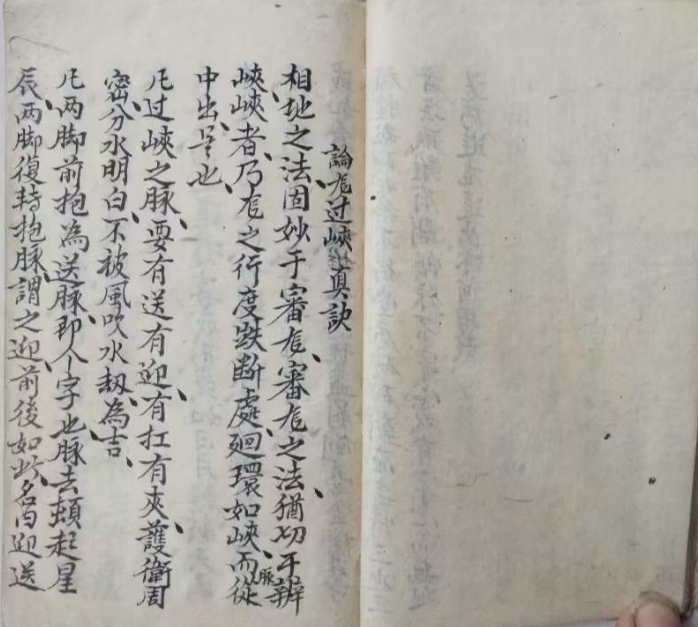 論尨过峽真訣
相地之法固妙于審尨審尨之法猶切于辨
峽峽者乃尨之行度跌斷處廻環如峽而脉從
中出是也
凡过峽之脉要有送有迎有扛有夾護衛周
密分水明白不被風吹水劫為吉
凡两脚前抱為送脉即个字也脉去頓起星
辰两脚復转抱脉謂之迎前後如此名曰迎送